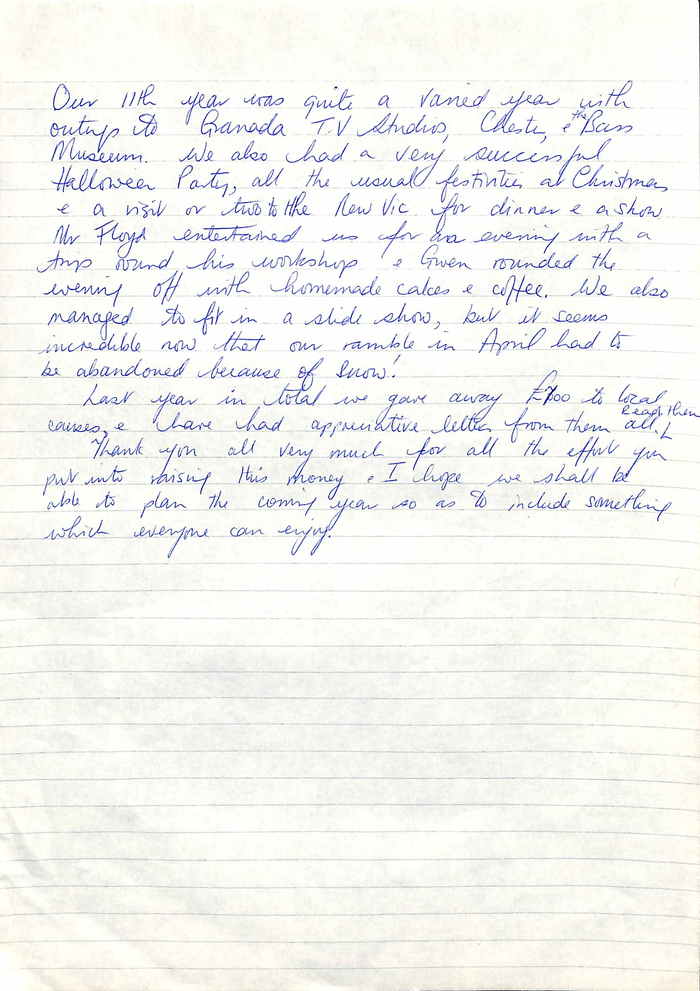 Our 11th year was quite a varied year with
outings to Granada T.V Studios, Chester, & the Bass
Museum. We also had a very successful
Halloween Party, all the usual festivities at Christmas
& a visit or two to the New Vic for dinner & a show.
Mr Floyd entertained us for an evening with a
trip round his workshop & Gwen rounded the
evening off with homemade cakes & coffee. We also
managed to fit in a slide show, but it seems
incredible now that our ramble in April had to
be abandoned because of snow!
Last year in total we gave away to local
causes, & I have had appreciative letters from them all. Read them
Thank you all very much for all the effort you
put into raising this money & I hope we shall be
able to plan the coming year so as to include something
which everyone can enjoy.